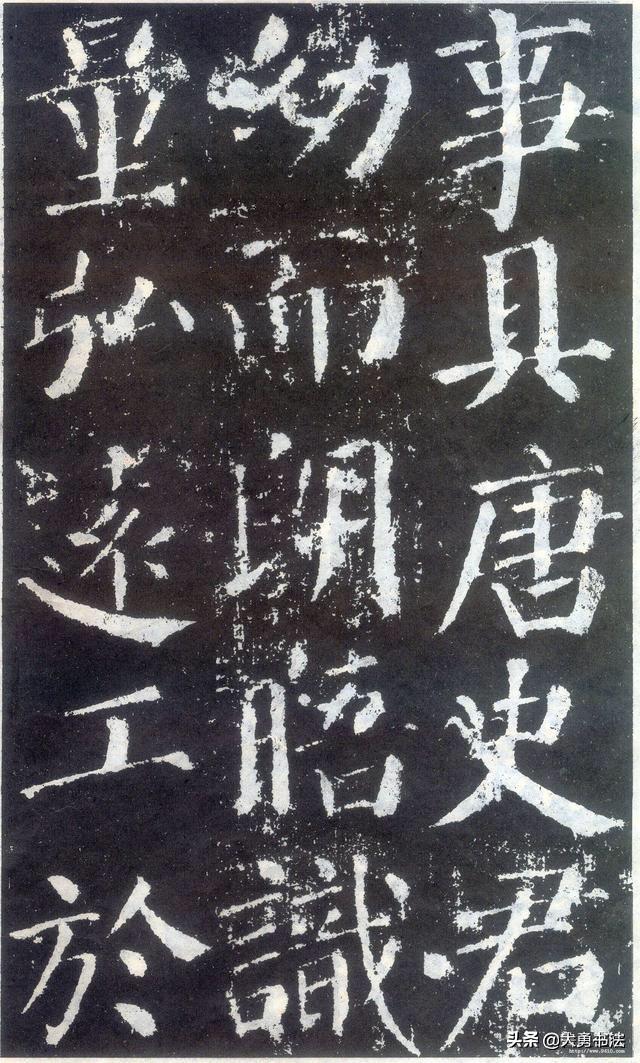 事具唐史君
幼而朗晤識
量弘遠工於
头条 @大勇书法